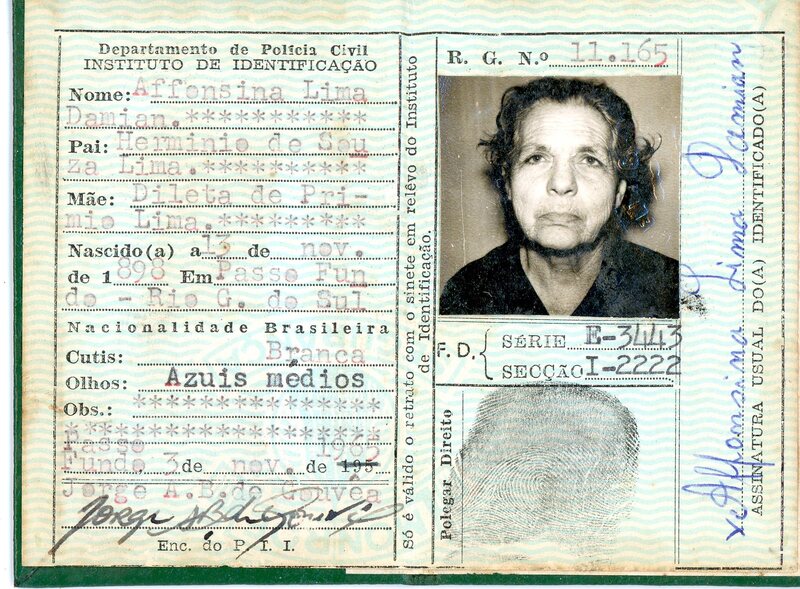 Departamento de Polícia Civil
INSTITUTO DE IDENTIFICAÇÃO
Nome: Affonsina Lima
Damian.***********
Pai: Herminio de Sou
za Lima.**********
Mãe: Dileta de Pri-
mio Lima.*********
Nascido(a) a 13 de nov.
de 1898 Em Passo Fun
do - Rio G. do Sul
Nacionalidade Brasileira
Cutis: Branca
Olhos: Azuis médios
Obs.: ***************
*******************
Passo 1965
Fundo 3 de nov. de 195
Jorge A.B.de Gouvêa
Enc. do P. I. I.
Só é válido o retrato com o sinete em relêvo do Instituto
de Identificação.
R. G. N.º 11.165
F. D. { SÉRIE E-3443
SECÇÃO I-2222
Polegar Direito
Affonsina Lima Damian
ASSINATURA USUAL DO(A) IDENTIFICADO(A)